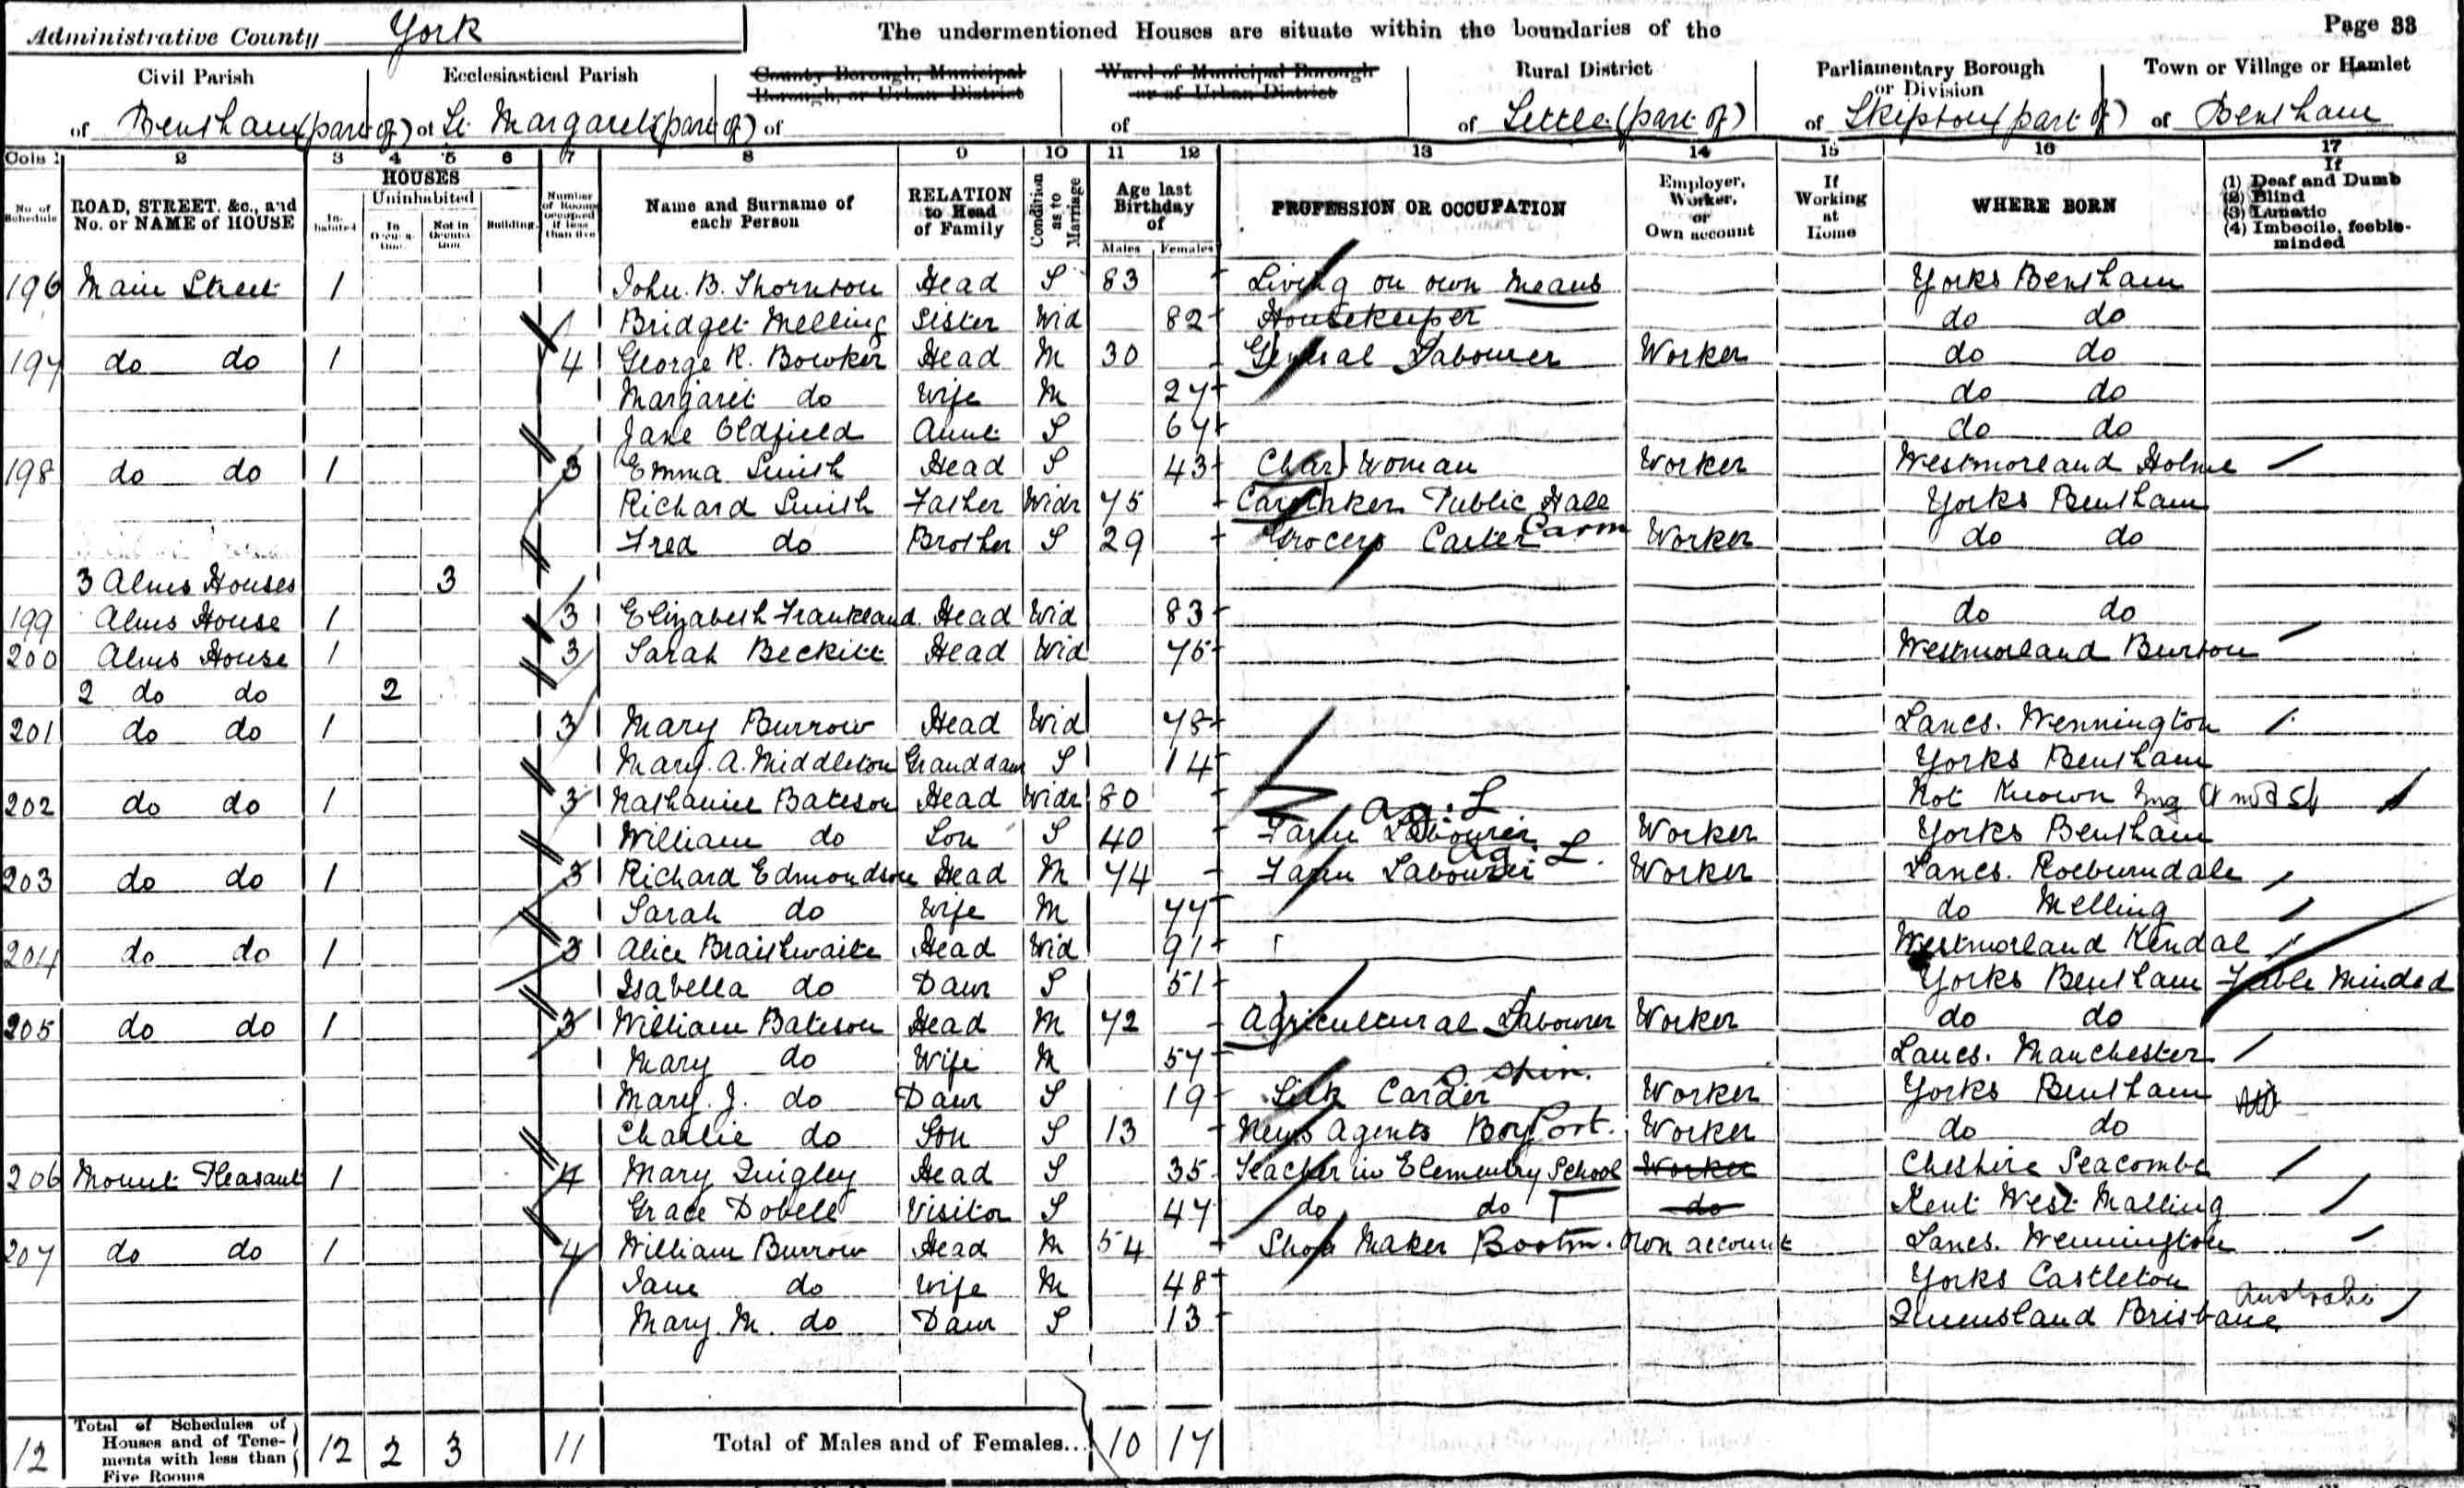 Administrative County York
The undermentioned Houses are situate within the boundaries of the
Page 33
Civil Parish
of Bentham (part of)
Ecclesiastical Parish
of St. Margarets (part of)
County Borough, Municipal Borough, or Urban District
of
Ward of Municipal Borough or of Urban District
of
Rural District
of Settle (part of)
Parliamentary Borough or Division
of Skipton (part of)
Town or Village or Hamlet
of Bentham
Cols 1 2 3 4 5 6 7 8 9 10 11 12 13 14 15 16 17
No. of Schedule
ROAD, STREET, &c., and No. or NAME of HOUSE
HOUSES
Inhabited
Uninhabited
In Occupation
Not in Occupation
Building
Number of Rooms occupied if less than five
Name and Surname of each Person
RELATION to Head of Family
Condition as to Marriage
Age last Birthday of
Males Females
PROFESSION OR OCCUPATION
Employer, Worker, or Own account
If Working at Home
WHERE BORN
If
(1) Deaf and Dumb
(2) Blind
(3) Lunatic
(4) Imbecile, feeble-minded
196 Main Street 1 John. B. Thornton Head S 83 Living on own means Yorks Bentham
Bridget Melling Sister Wid 82 Housekeeper do do
197 do do 1 4 George R. Bowker Head M 30 General Labourer Worker do do
Margaret do Wife M 27 do do
Jane Oldfield Aunt S 67 do do
198 do do 1 3 Emma Smith Head S 43 Char Woman Worker Westmoreland Holme
Richard Smith Father Widr 75 Caretaker Public Hall Yorks Bentham
Fred do Brother S 29 Grocers Carter Carm Worker do do
3 Alms Houses 3
199 Alms House 1 3 Elizabeth Frankland Head Wid 83 do do
200 Alms House 1 3 Sarah Beckitt Head Wid 75 Westmorland Burton
2 do do 2
201 do do 1 3 Mary Burrow Head Wid 78 Lancs. Wennington
Mary. A. Middleton Granddaur S 14 Yorks Bentham
202 do do 1 3 Nathaniel Bateson Head Widr 80 Not Known Eng
William do Son S 40 Farm Labourer Ag: L Worker Yorks Bentham
203 do do 1 3 Richard Edmondson Head M 74 Farm Labourer Ag: L. Worker Lancs. Roeburndale
Sarah do Wife M 77 do Melling
204 do do 1 3 Alice Braithwaite Head Wid 91 Westmorland Kendal
Isabella do Daur S 51 Yorks Bentham Feble Minded
205 do do 1 3 William Bateson Head M 72 Agricultural Labourer Worker do do
Mary do Wife M 57 Lancs. Manchester
Mary. J. do Daur S 19 Silk Carder Spin. Worker Yorks Bentham
Charlie do Son S 13 News Agents Boy Port. Worker do do
206 Mount Pleasant 1 4 Mary Quigley Head S 35 Teacher in Elementry School Worker Cheshire Seacombe
Grace Dobell Visitor S 47 do do T do Kent West Malling
207 do do 1 4 William Burrow Head M 54 Shoe Maker Bootm. Own account Lancs. Wennington
Jane do Wife M 48 Yorks Castleton
Mary. M. do Daur S 13 Queensland Brisbane Australia
12 Total of Schedules of Houses and of Tenements with less than Five Rooms 12 2 3 11 Total of Males and of Females... 10 17